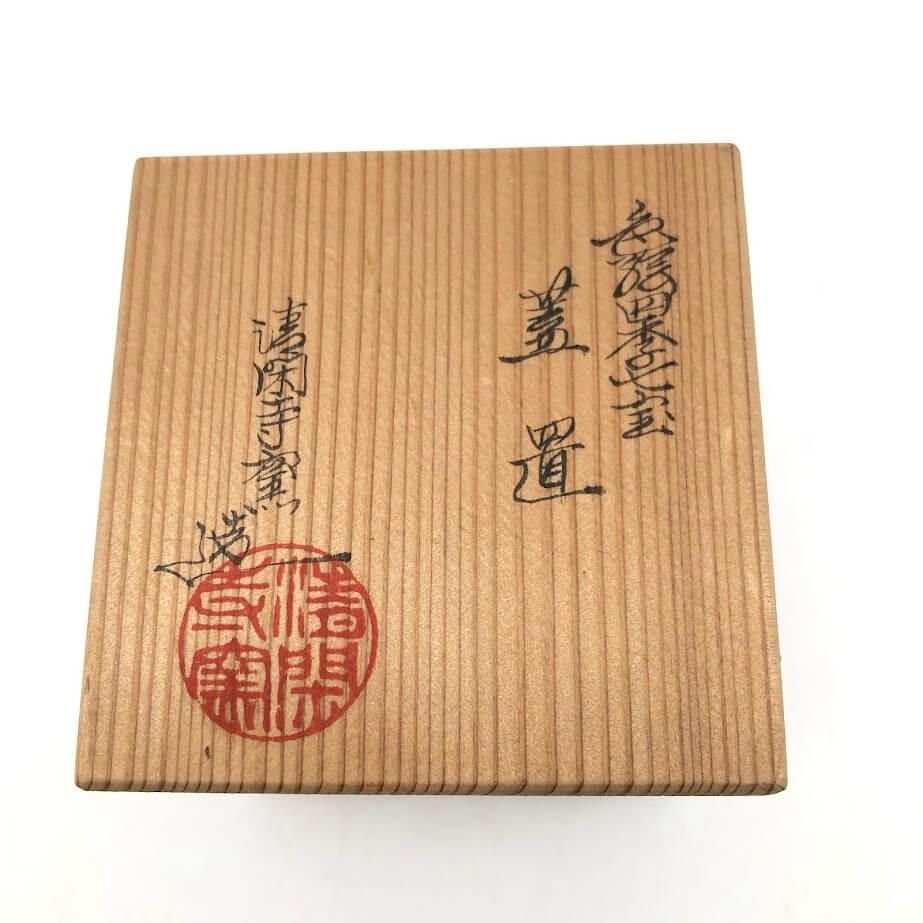 色絵四季七宝
蓋置
清閑寺窯造
清閑
寺窯